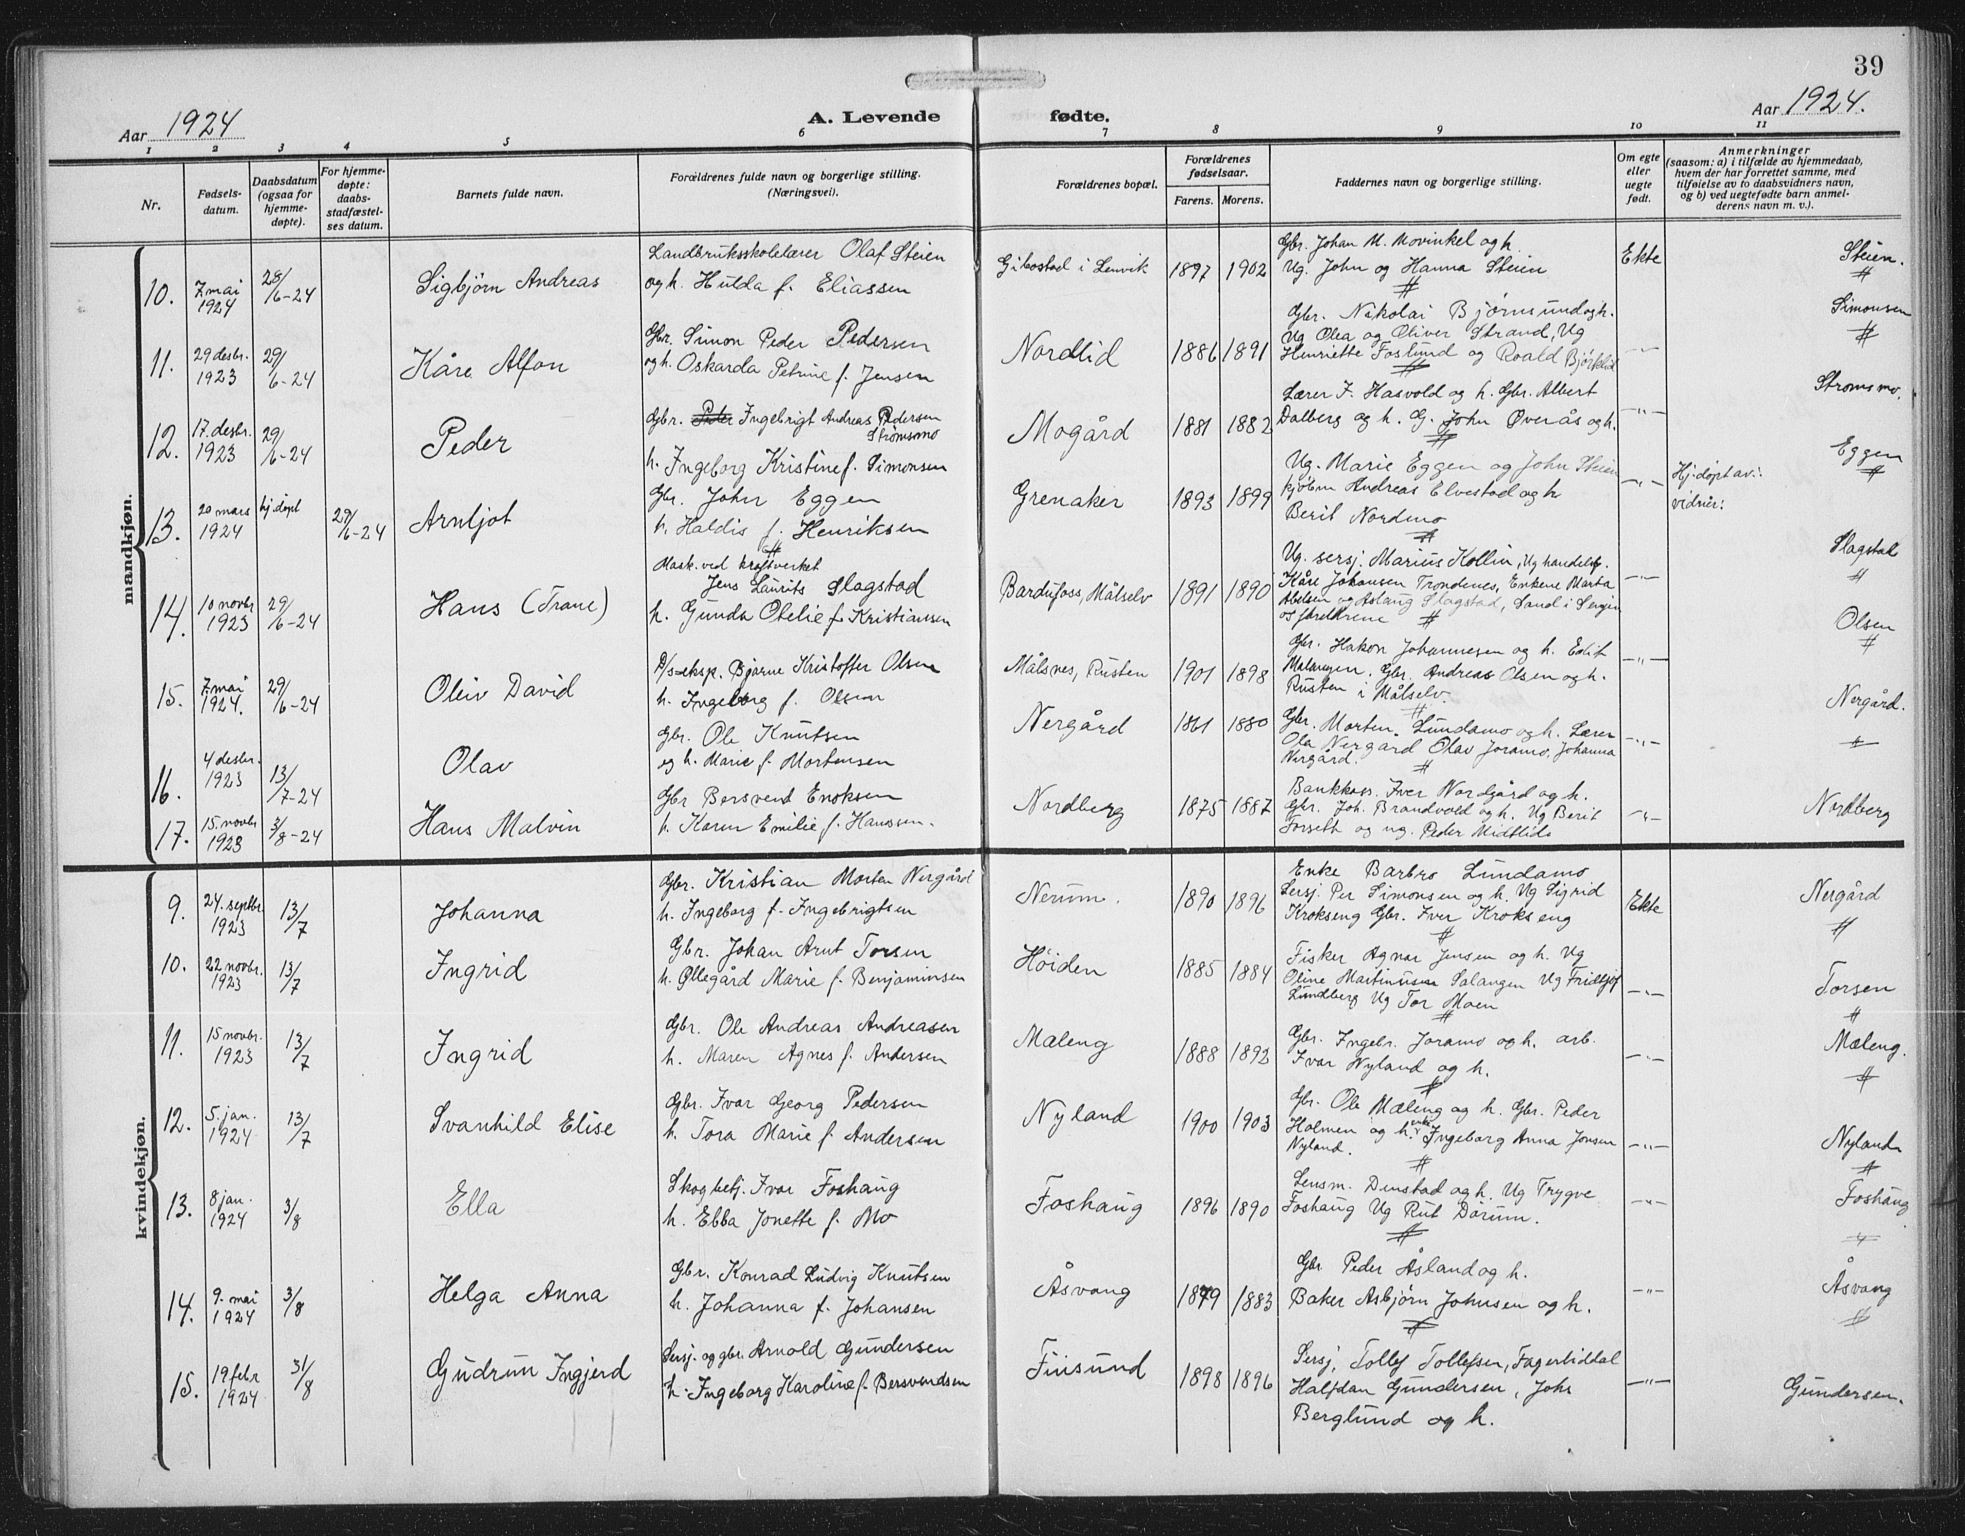 39
Aar 1924
A. Levende
fødte.
Aar 1924.
1 2 3 4 5 6 7 8 9 10 11
Nr.
Fødsels-
datum.
Daabsdatum
(ogsaa for
hjemme-
døpte).
For hjemme-
døpte:
daabs-
stadfæstel-
ses datum.
Barnets fulde navn.
Forældrenes fulde navn og borgerlige stilling.
(Næringsvei).
Forældrenes bopæl.
Forældrenes
fødselsaar.
Farens. Morens.
Faddernes navn og borgerlige stilling.
Om egte
eller
uegte
født.
Anmerkninger
(saasom: a) i tilfælde av hjemmedaab,
hvem der har forrettet samme, med
tilføielse av to daabsvidners navn,
og b) ved uegtefødte barn anmel-
derens navn m. v.).
mandkjøn.
10.
7 mai
1924
28/6-24
Sigbjørn Andreas
Landbruksskolelærer Olaf Steien
og h. Hulda f. Eliassen
Gibostad i Lenvik
1897 1902
Gbr. Johan M. Movinkel og h.
Ug. John og Hanna Steien
Ekte
Steien.
11.
29 desbr.
1923
29/6-24
Kåre Alfon
Gbr. Simon Peder Pedersen
og h. Oskarda Petrine f. Jensen
Nordlid
1886 1891
Gbr. Nikolai Bjørnsund og h.
Ug Olea og Oliver Strand, Ug
Henriette Foslund og Roald Bjørklid
-"-
Simonsen
12.
17. desbr.
1923
29/6-24
Peder
Gbr. Peder Ingebrigt Andreas Pedersen
Strømsmo
h. Ingeborg Kristine f. Simonsen
Mogård
1881 1882
Lærer F. Hasvold og h. Gbr. Albert
Dalberg og h. G. John Øverås og h.
-"-
Strømsmo.
13.
20 mars
1924
hj. døpt
29/6-24
Arnljot
Gbr. John Eggen
h. Haldis f. Henriksen
Grenaker
1893 1899
Ug. Marie Eggen og John Steien
kjøbm Andreas Elvestad og h
Berit Nordmo
-"-
Hj. døpt av:
vidner:
Eggen
14.
10 novbr
1923
29/6-24
Hans (Trane)
Mask. ved kraftverket
Jens Laurits Slagstad
h. Gunda Otelie f. Kristiansen
Bardufoss, Målselv
1891 1890
Ug. sersj. Marius Kollin, Ug handelsf.
Kåre Johansen Trondenes, Enkene Marta
Abelsen og Aslaug Slagstad, Sand i Sørreisa
og foreldrene
-"-
Slagstad
15.
7. mai
1924.
29/6-24
Oleiv David
D/sseksp. Bjarne Kristoffer Olsen
h. Ingeborg f. Olsen
Målsnes, Rusten
1901 1898
Gbr. Hakon Johannesen og h. Edit
Malangen. Gbr. Andreas Olsen og h.
Rusten i Målselv.
-"-
Olsen
16.
4 desbr.
1923
13/7-24
Olav
Gbr. Ole Knutsen
og h. Marie f. Mortensen
Nergård
1881 1880
Gbr. Morten Lundamo og h. Lærer
Ola Nergård Olav Joramo, Johanna
Nergård.
-"-
Nergård.
17.
15. novbr
1923
3/8-24
Hans Malvin
Gbr Bersvend Enoksen
h. Karen Emilie f. Hanssen.
Nordberg
1875 1887
Bankkass. Iver Nordgård og h.
Gbr. Joh. Brandvold og h. Ug Berit
Forseth og ug. Peder Midtlide
-"-
Nordberg
kvindekjøn.
9.
24. septbr.
1923
13/7
Johanna
Gbr. Kristian Morten Nergård
h. Ingeborg f. Ingebrigtsen
Nerum.
1890 1896
Enke Barbro Lundamo
Sersj. Per Simonsen og h. Ug Sigrid
Krokseng Gbr. Iver Krokseng
Ekte
Nergård
10.
22 novbr.
1923
13/7
Ingrid
Gbr. Johan Arnt Torsen
h. Øllegård Marie f. Benjaminsen
Høiden
1885 1884
Fisker Agnar Jensen og h. Ug
Oline Martinusen Salangen Ug Fridtjof
Lundberg Ug Tor Moen
-"-
Torsen
11.
15 novbr.
1923
13/7
Ingrid
Gbr. Ole Andreas Andreasen
h. Maren Agnes f. Andersen
Mæleng
1888 1892
Gbr. Ingebr. Joramo og h. arb.
Ivar Nyland og h.
-"-
Mæleng.
12.
5. jan.
1924
13/7
Svanhild Elise
Gbr. Ivar Georg Pedersen
h. Tora Marie f. Andersen
Nyland
1900 1903
Gbr. Ole Mæleng og h. Gbr. Peder
Holmen og h. enke Ingeborg Anna Jonsen
Nyland.
-"-
Nyland
13.
8 jan.
1924
3/8
Ella
Skogbetj. Ivar Foshaug
h. Ebba Jonette f. Mo
Foshaug
1896 1890
Lensm. Denstad og h. Ug Trygve
Foshaug Ug Rut Dørum.
-"-
Foshaug
14.
9. mai
1924
3/8
Helga Anna
Gbr. Konrad Ludvig Knutsen
h. Johanna f. Johansen
Åsvang
1879 1883
Gbr Peder Åsland og h.
Baker Asbjørn Johnsen og h.
-"-
Åsvang
15.
19 febr
1924
31/8
Gudrun Ingjerd
Sersj. og gbr. Arnold Gundersen
h. Ingeborg Karoline f. Bersvendsen
Finsund
1898 1896
Sersj. Tollef Tollefsen, Fagerliddal
Halfdan Gundersen, John
Berglund og h.
-"-
Gundersen.